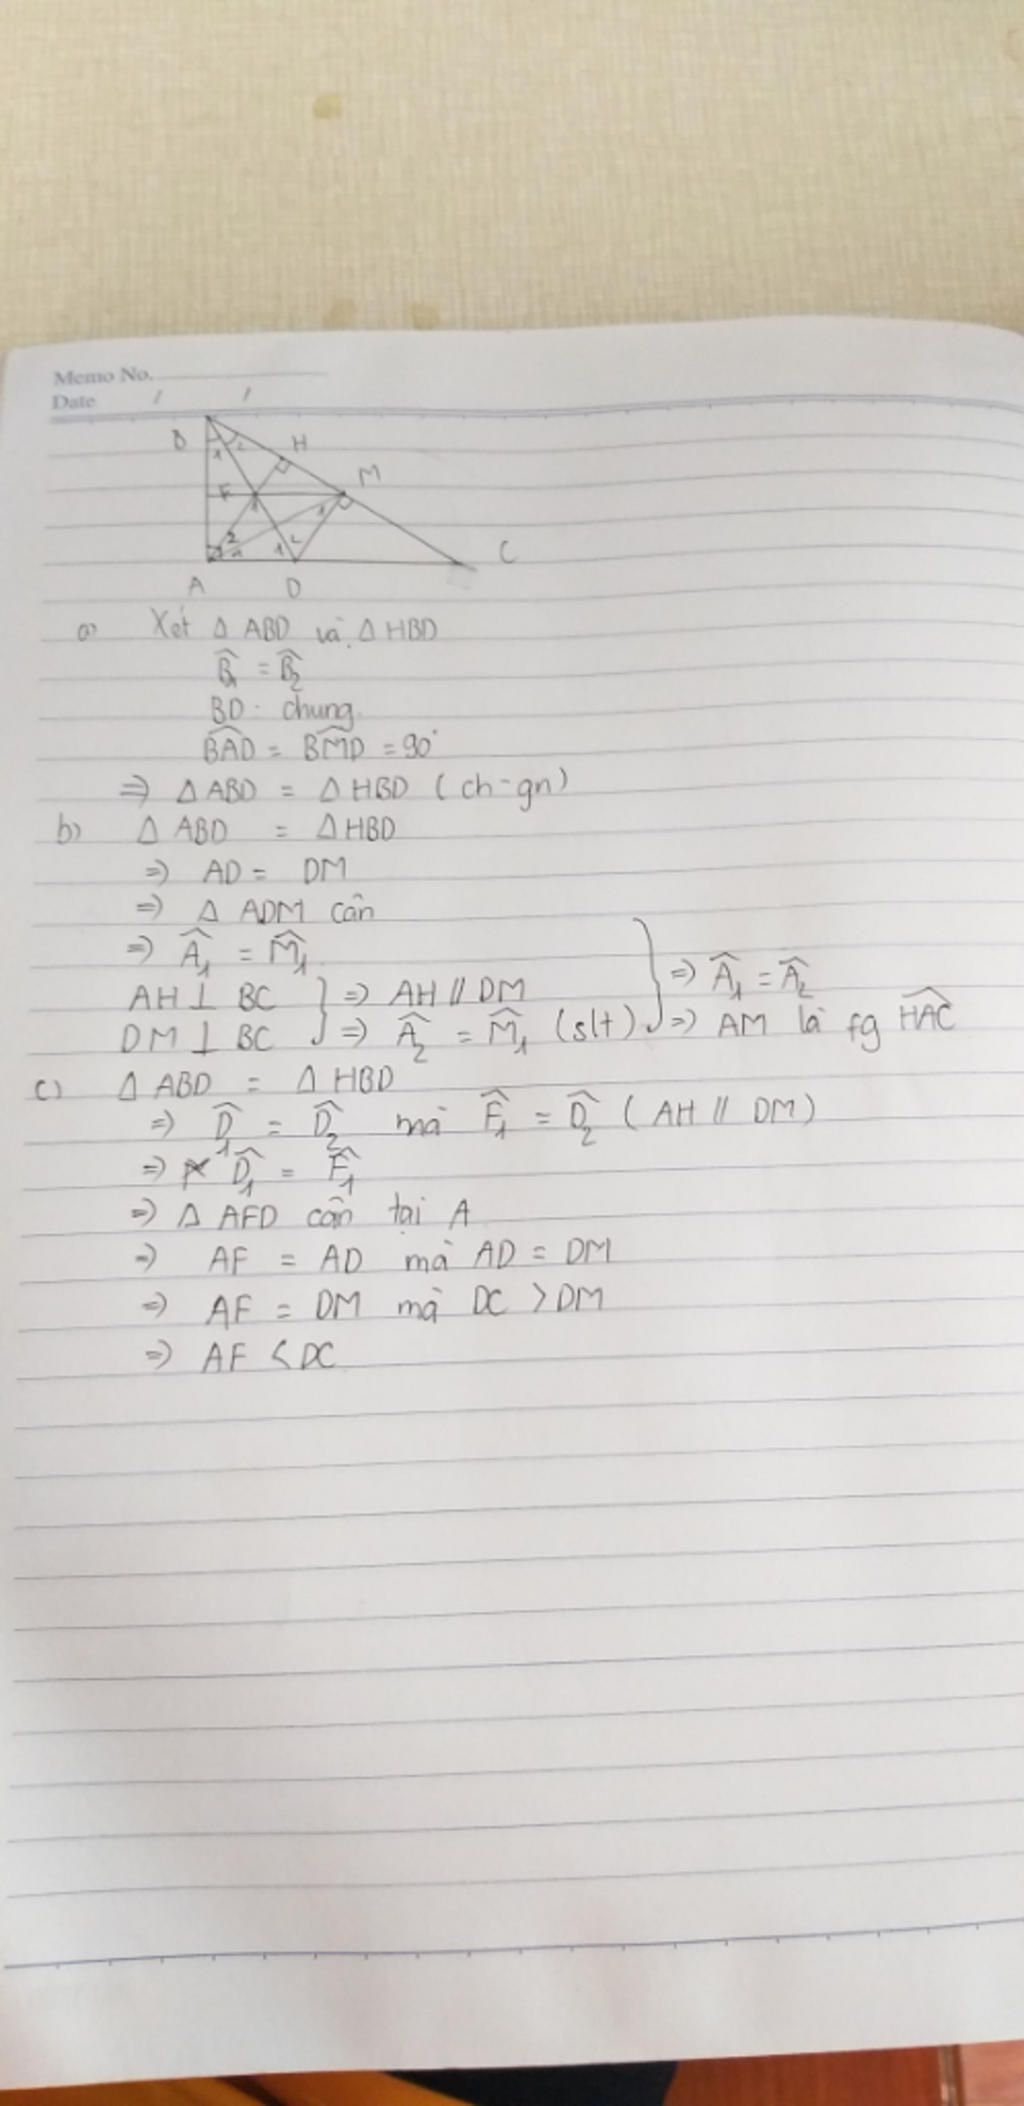 Memo No.
Date / /
B H M
F
A D C
a) Xét Δ ABD và Δ HBD
B̂₁ = B̂₂
BD: chung
BAD̂ = BMD̂ = 90°
=> Δ ABD = Δ HBD (ch-gn)
b) Δ ABD = Δ HBD
=> AD = DM
=> Δ ADM cân
=> Â₁ = M̂₁
=> Â₁ = Â₂
AH ⊥ BC } => AH // DM
DM ⊥ BC => Â₂ = M̂₁ (slt) => AM là fg HAĈ
c) Δ ABD = Δ HBD
=> D̂₁ = D̂₂ mà F̂₁ = D̂₂ (AH // DM)
=> D̂₁ = F̂₁
=> Δ AFD cân tại A
=> AF = AD mà AD = DM
=> AF = DM mà DC > DM
=> AF < DC